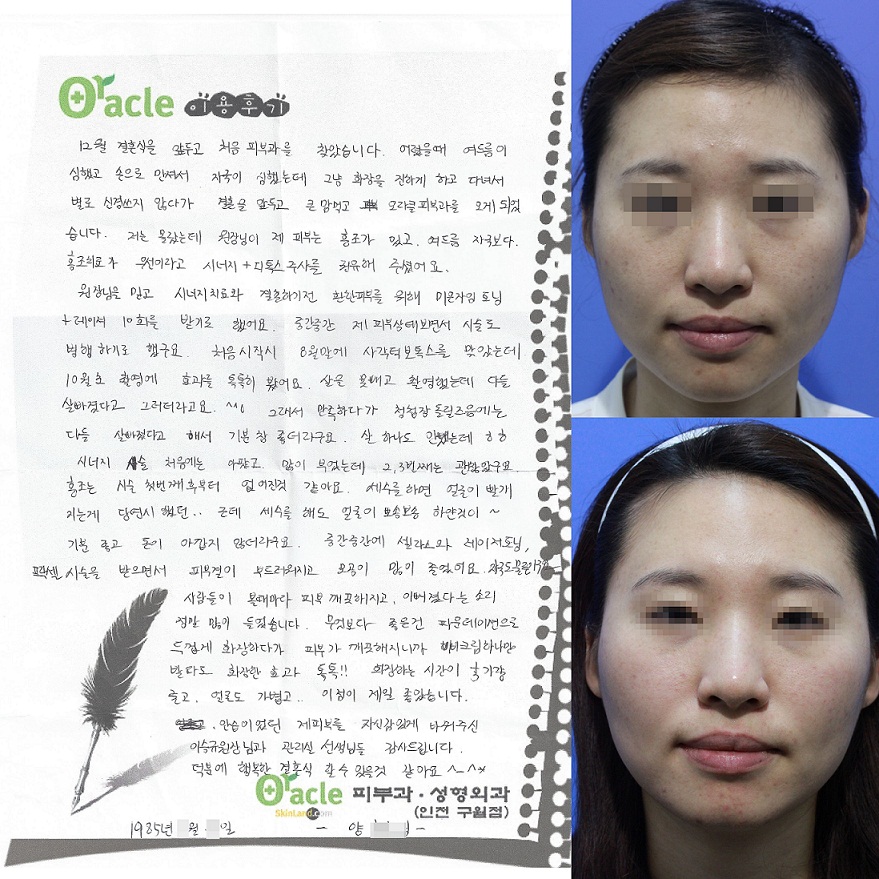 Oracle 이용후기
12월 결혼식을 앞두고 처음 피부과를 찾았습니다. 어렸을때 여드름이
심했고 손으로 만져서 자국이 심했는데 그냥 화장을 진하게 하고 다녀서
별로 신경쓰지 않다가 결혼을 앞두고 큰 맘먹고 오라클피부과를 오게 되었
습니다. 저는 몰랐는데 원장님이 제 피부는 홍조가 있고, 여드름 자국보다.
홍조치료가 우선이라고 시너지+디톡스주사를 권유해 주셨어요.
원장님을 믿고 시너지치료와 결혼하기전 환한피부를 위해 미온자임 토닝
+레이저 10회를 받기로 했어요. 중간중간 제 피부상태보면서 시술도
병행하기로 했구요. 처음시작시 8월만에 사각턱보톡스를 맞았는데
10월초 촬영에 효과를 톡톡히 봤어요. 살은 못빼고 촬영했는데 다들
살빠졌다고 그러더라고요. ^^ 그래서 만족하다가 청첩장 돌릴즈음에는
다들 살빠졌다고 해서 기분 참 좋더라구요. 살 하나도 안뺐는데 ㅎㅎ
시너지 시술 처음에는 아팠고 많이 부었는데 2,3번째는 괜찮았구요
홍조는 시술 첫번째후부터 없어진것 같아요. 세수를하면 얼굴이 빨개
지는게 당연시 했던.. 근데 세수를 해도 얼굴이 뽀송뽀송 하얀것이 ~
기분 좋고 돈이 아깝지 않더라구요. 중간중간에 셀라스와 레이저토닝,
시술을 받으면서 피부결이 부드러워지고 모공이 많이 줄었어요.
사람들이 볼때마다 피부 깨끗해지고, 이뻐졌다는 소리
정말 많이 들었습니다. 무엇보다 좋은건 파운데이션으로
두껍게 화장하다가 피부가 깨끗해지니까 비비크림하나만
발라도 화장한 효과 톡톡!! 화장하는 시간이
줄고, 얼굴도 가볍고.. 이점이 제일 좋았습니다.
민습이었던 제피부를 자신감있게 바꿔주신
이승규원장님과 관리실 선생님들 감사드립니다.
덕분에 행복한 결혼식 할 수 있을것 같아요 ^-^*
Oracle 피부과·성형외과
SkinLand.com (인천 구월점)
1985년 월 일 - 양 -